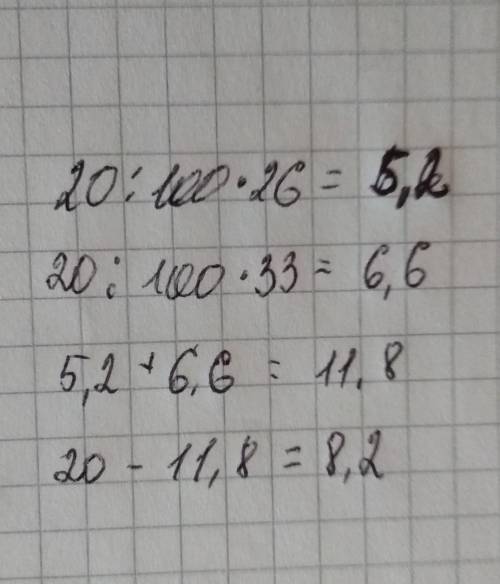 20 : 100 · 26 = 5,2
20 : 100 · 33 = 6,6
5,2 + 6,6 = 11,8
20 - 11,8 = 8,2